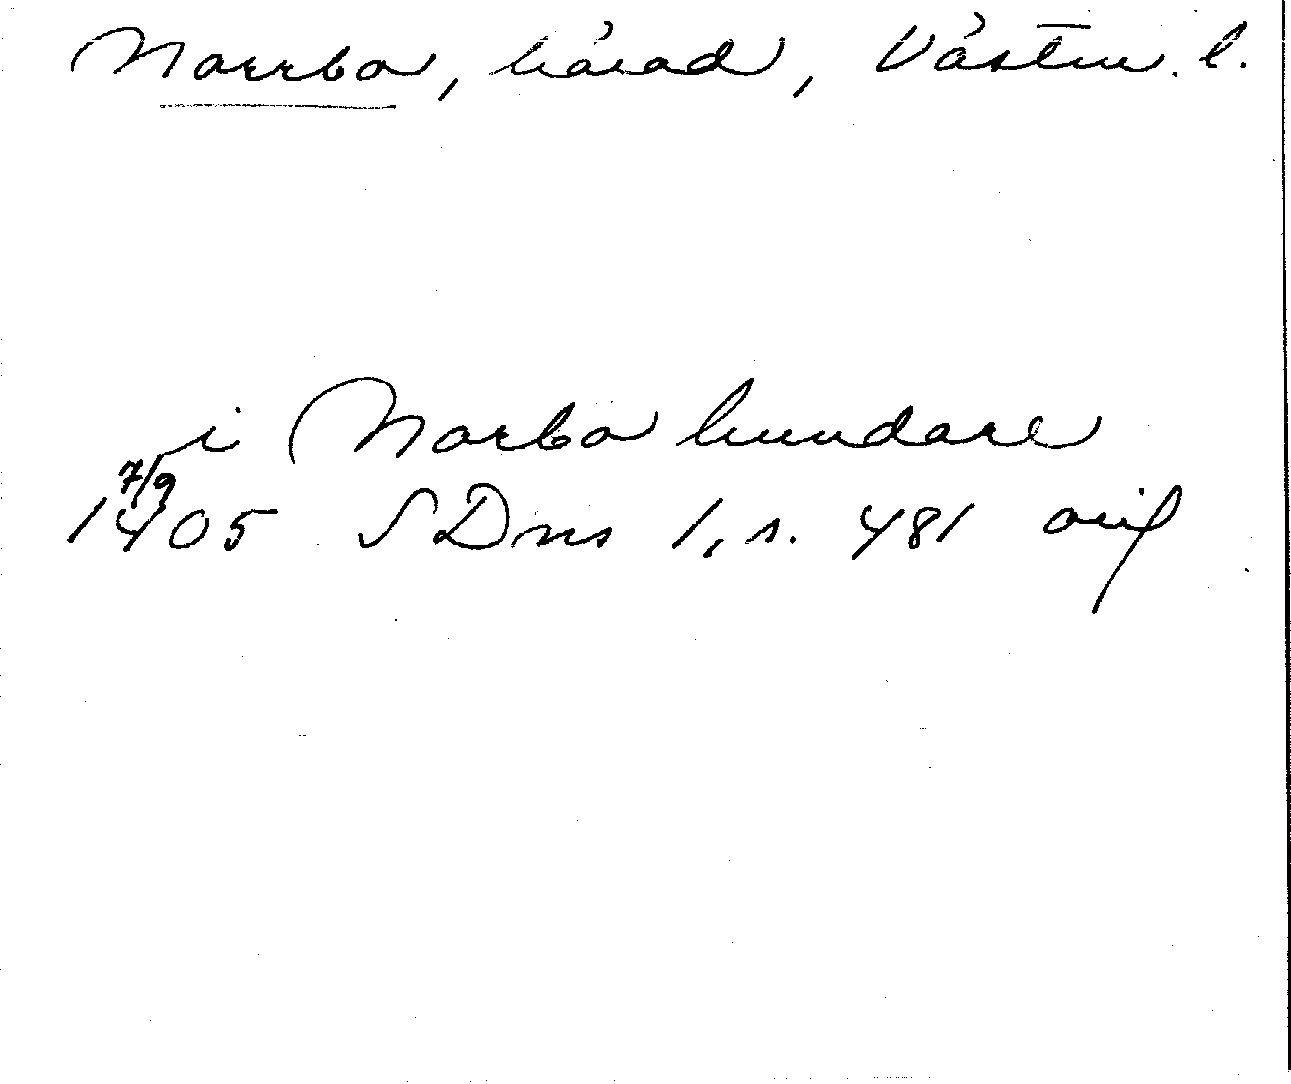 Norrbo, härad, Västm. l.
i Norbo hundare
7/9
1405 SDns 1, s. 481 orig